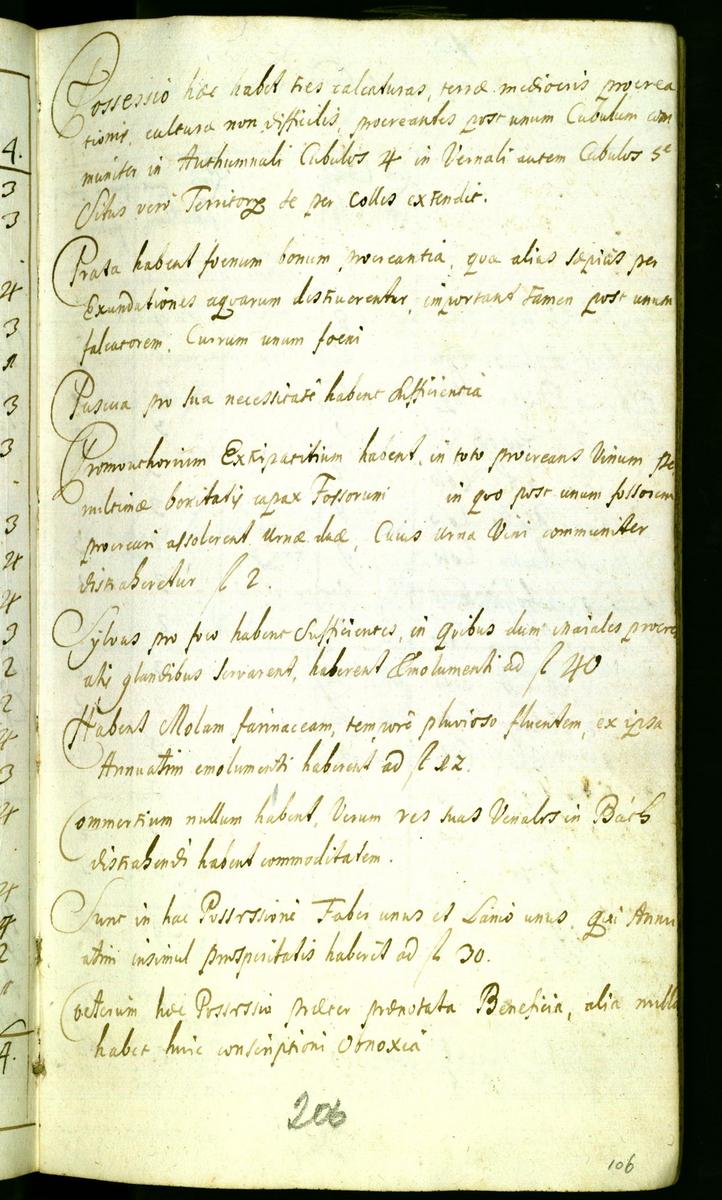 Possessio hæc habet tres calcaturas, terræ mediocris procrea
tionis, culturæ non difficilis, procreantes post unum Cubulum com
muniter in Authumnali Cubulos 4 in Vernali autem Cubulos 5e
Situs vero Territory se per Colles extendit.
Prata habent foenum bonum procreantia, quæ alias sæpius per
Exundationes aquarum destruerentur, important tamen post unum
falcatorem, Currum unum foeni
Pascua pro sua necessitate habent sufficientia
Promonthorium Extirpatitium habent, in toto procreans Vinum pe
nultimæ bonitatis capax Fossorum in quo post unum fossorem
procreari assolerent Urnæ duæ, Cuius Urna Vini communiter
distraheretur f 2.
Sylvas pro foco habent Sufficientes, in quibus dum maiales procre
atis glandibus servarent, haberent Emolumenti ad f 40
Habent Molam farinaceam, tempore pluvioso fluentem, ex ipsa
Annuatim emolumenti haberent ad f 12.
Commertium nullum habent, Verum res suas Venales in Bách
distrahendi habent commoditatem.
Sunt in hac Possessione Faber unus et Lanio unus qui Annu
atim insimul prosperitatis haberet ad f 30.
Cœterum hæc Possessio præter prænotata Beneficia, alia nulla
habet huic conscriptioni Obnoxia
206
106
4.
3
3
4
3
3
3
3
4
4
3
2
2
4
3
4
4
4
2
4.